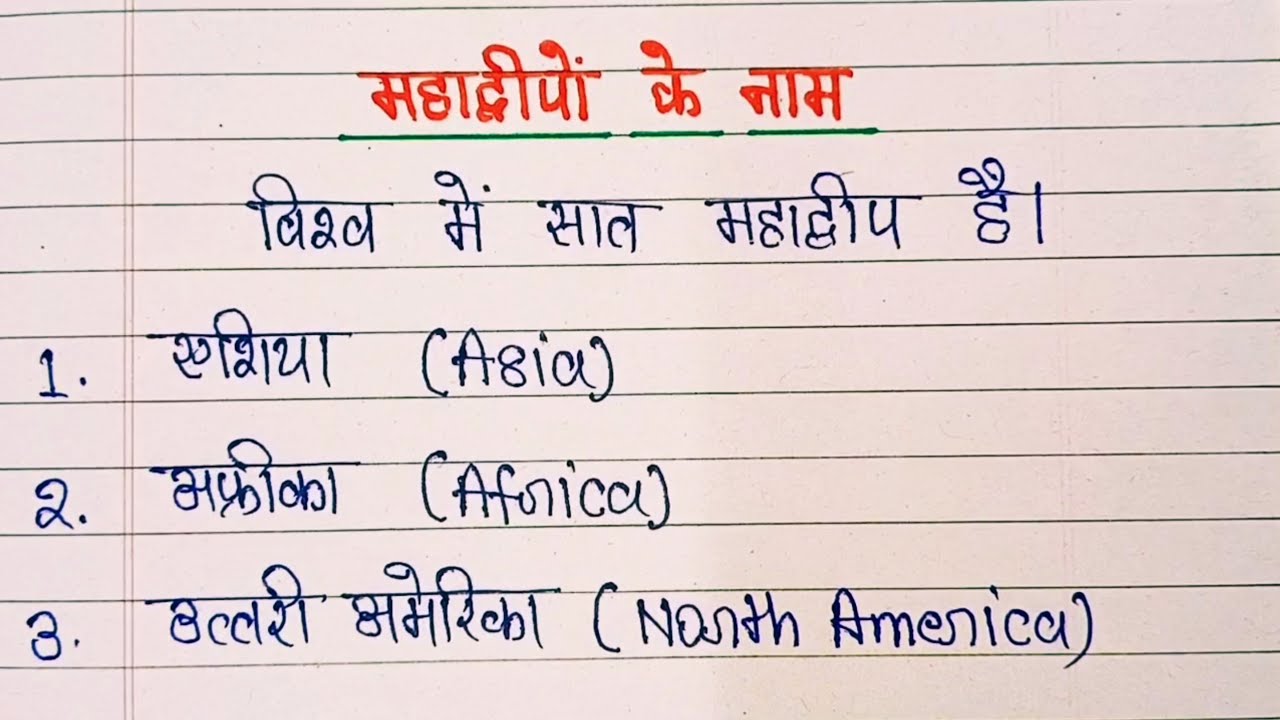 महाद्वीपों के नाम
विश्व में सात महाद्वीप है।
1. एशिया (Asia)
2. अफ्रीका (Africa)
3. उत्तरी अमेरिका (North America)